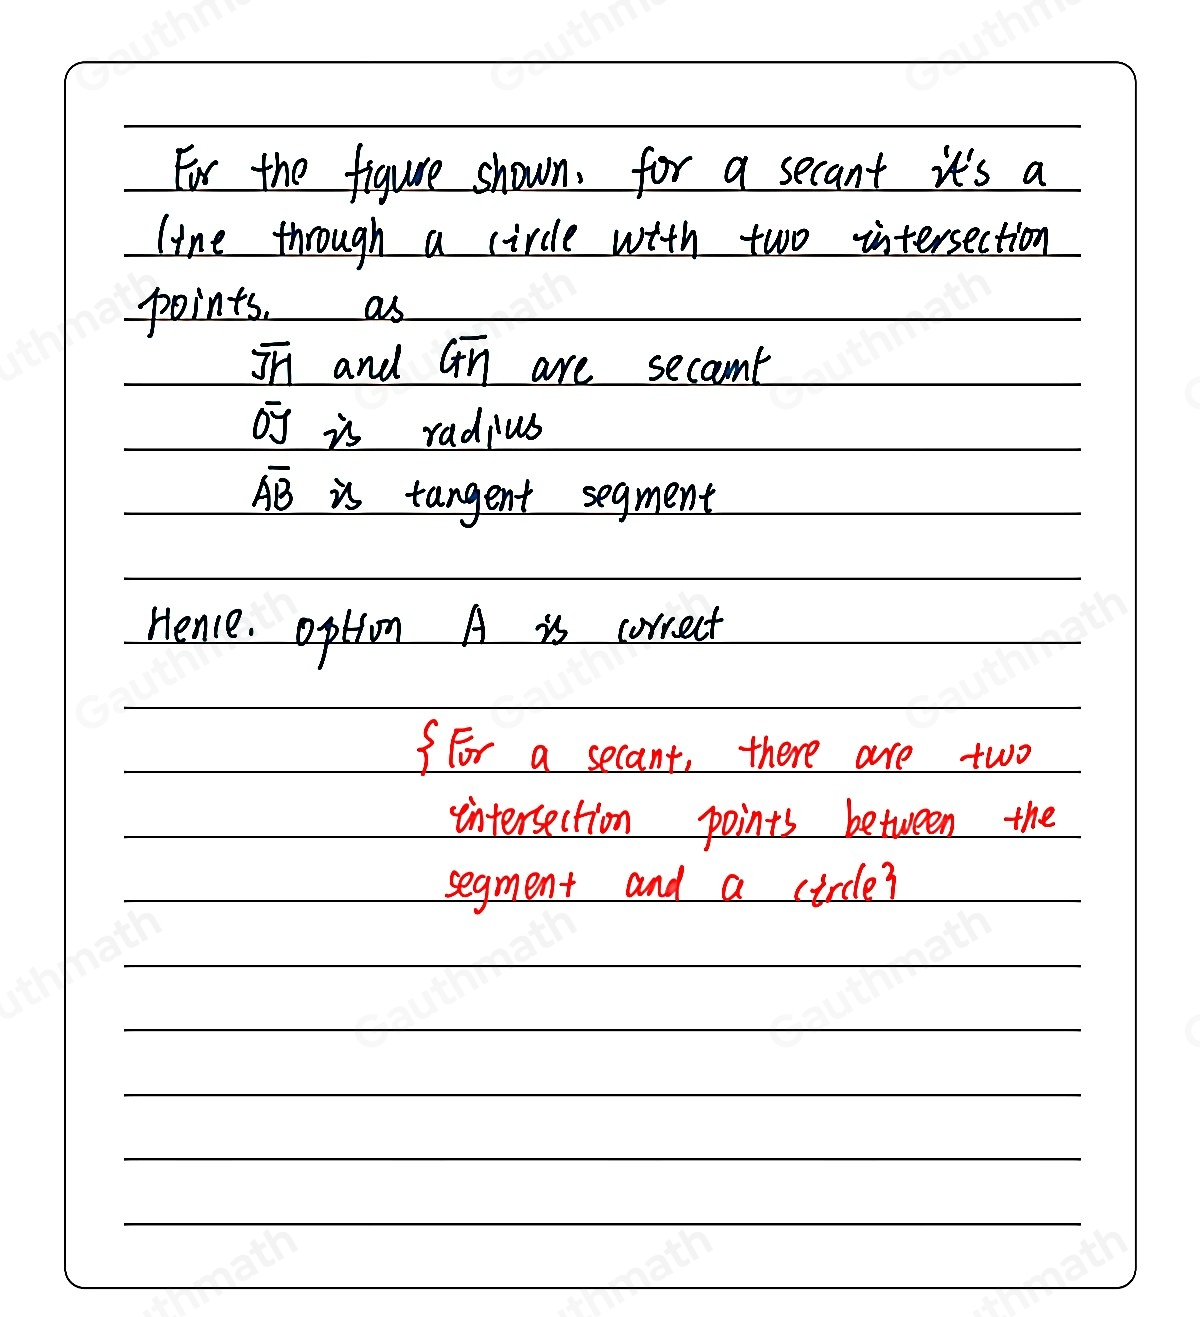 For the figure shown, for a secant it's a
line through a circle with two intersection
points. as
J̅H̅ and G̅H̅ are secant
O̅J̅ is radius
A̅B̅ is tangent segment
Hence. option A is correct
{For a secant, there are two
intersection points between the
segment and a circle}
Gauthmath